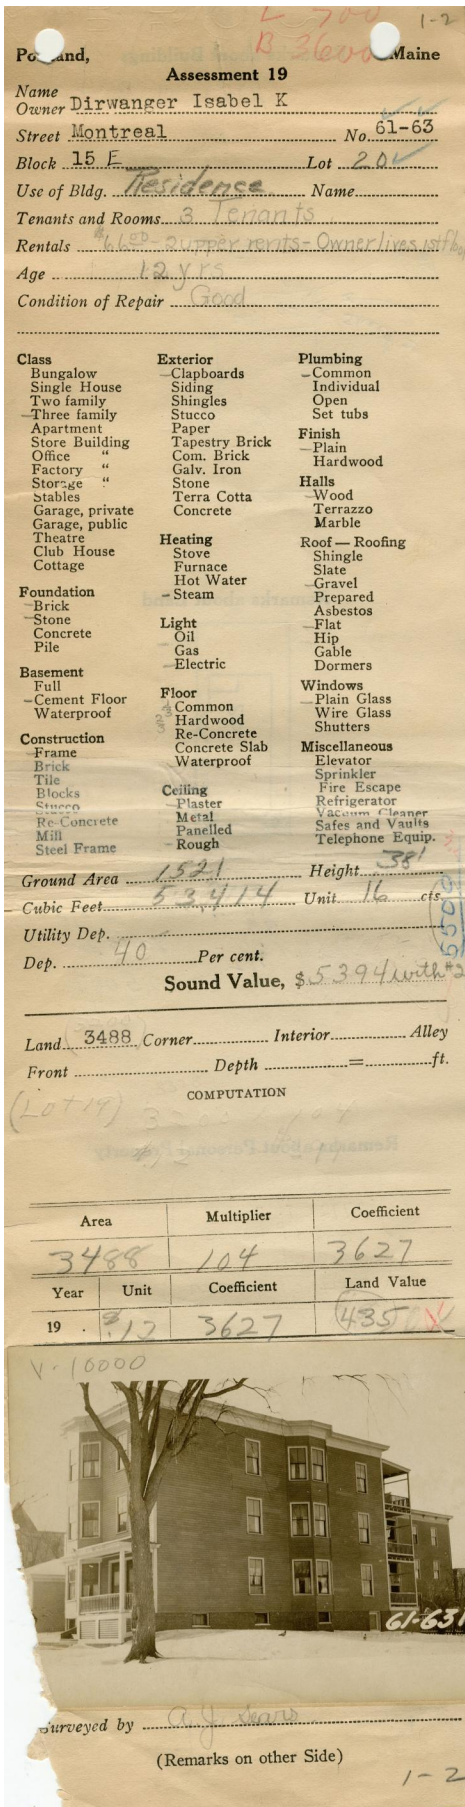 L 700
1-2
B 3600
Portland, Maine
Assessment 19
Name
Owner Dirwanger Isabel K
Street Montreal No. 61-63
Block 15 E Lot 20
Use of Bldg. Residence Name
Tenants and Rooms 3 Tenants
Rentals $66.00 - 2 upper rents - Owner lives 1st floor
Age 12 yrs
Condition of Repair Good
Class
Bungalow
Single House
Two family
Three family
Apartment
Store Building
Office "
Factory "
Storage "
Stables
Garage, private
Garage, public
Theatre
Club House
Cottage
Foundation
Brick
Stone
Concrete
Pile
Basement
Full
Cement Floor
Waterproof
Construction
Frame
Brick
Tile
Blocks
Stucco
Re-Concrete
Mill
Steel Frame
Exterior
Clapboards
Siding
Shingles
Stucco
Paper
Tapestry Brick
Com. Brick
Galv. Iron
Stone
Terra Cotta
Concrete
Heating
Stove
Furnace
Hot Water
Steam
Light
Oil
Gas
Electric
Floor
Common
Hardwood
Re-Concrete
Concrete Slab
Waterproof
Ceiling
Plaster
Metal
Panelled
Rough
Plumbing
Common
Individual
Open
Set tubs
Finish
Plain
Hardwood
Halls
Wood
Terrazzo
Marble
Roof — Roofing
Shingle
Slate
Gravel
Prepared
Asbestos
Flat
Hip
Gable
Dormers
Windows
Plain Glass
Wire Glass
Shutters
Miscellaneous
Elevator
Sprinkler
Fire Escape
Refrigerator
Vacuum Cleaner
Safes and Vaults
Telephone Equip.
Ground Area 1521 Height 38'
Cubic Feet 53,414 Unit 16 cts.
5500
Utility Dep.
Dep. 40 Per cent.
Sound Value, $ 5394 with #2
Land 3488 Corner Interior Alley
Front Depth = ft.
COMPUTATION
(Lot 19)
Area Multiplier Coefficient
3488 104 3627
Year Unit Coefficient Land Value
19 $.12 3627 435
V-10000
61-63
Surveyed by A. J. Sears
(Remarks on other Side)
1-2